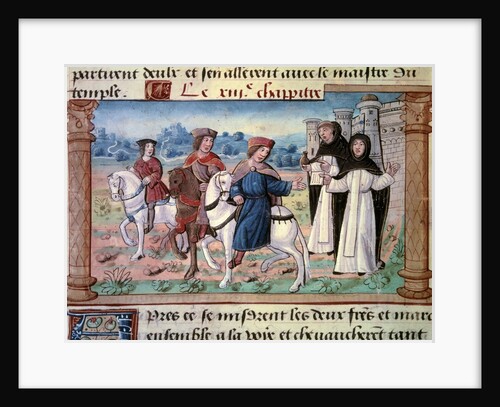 partirent deulx et sen allerent avec le maistre du
temple. Le xiii.e chappitre
Apres ce se misdrent les deux freres et marc
ensemble a la voie et chevaucherent tant